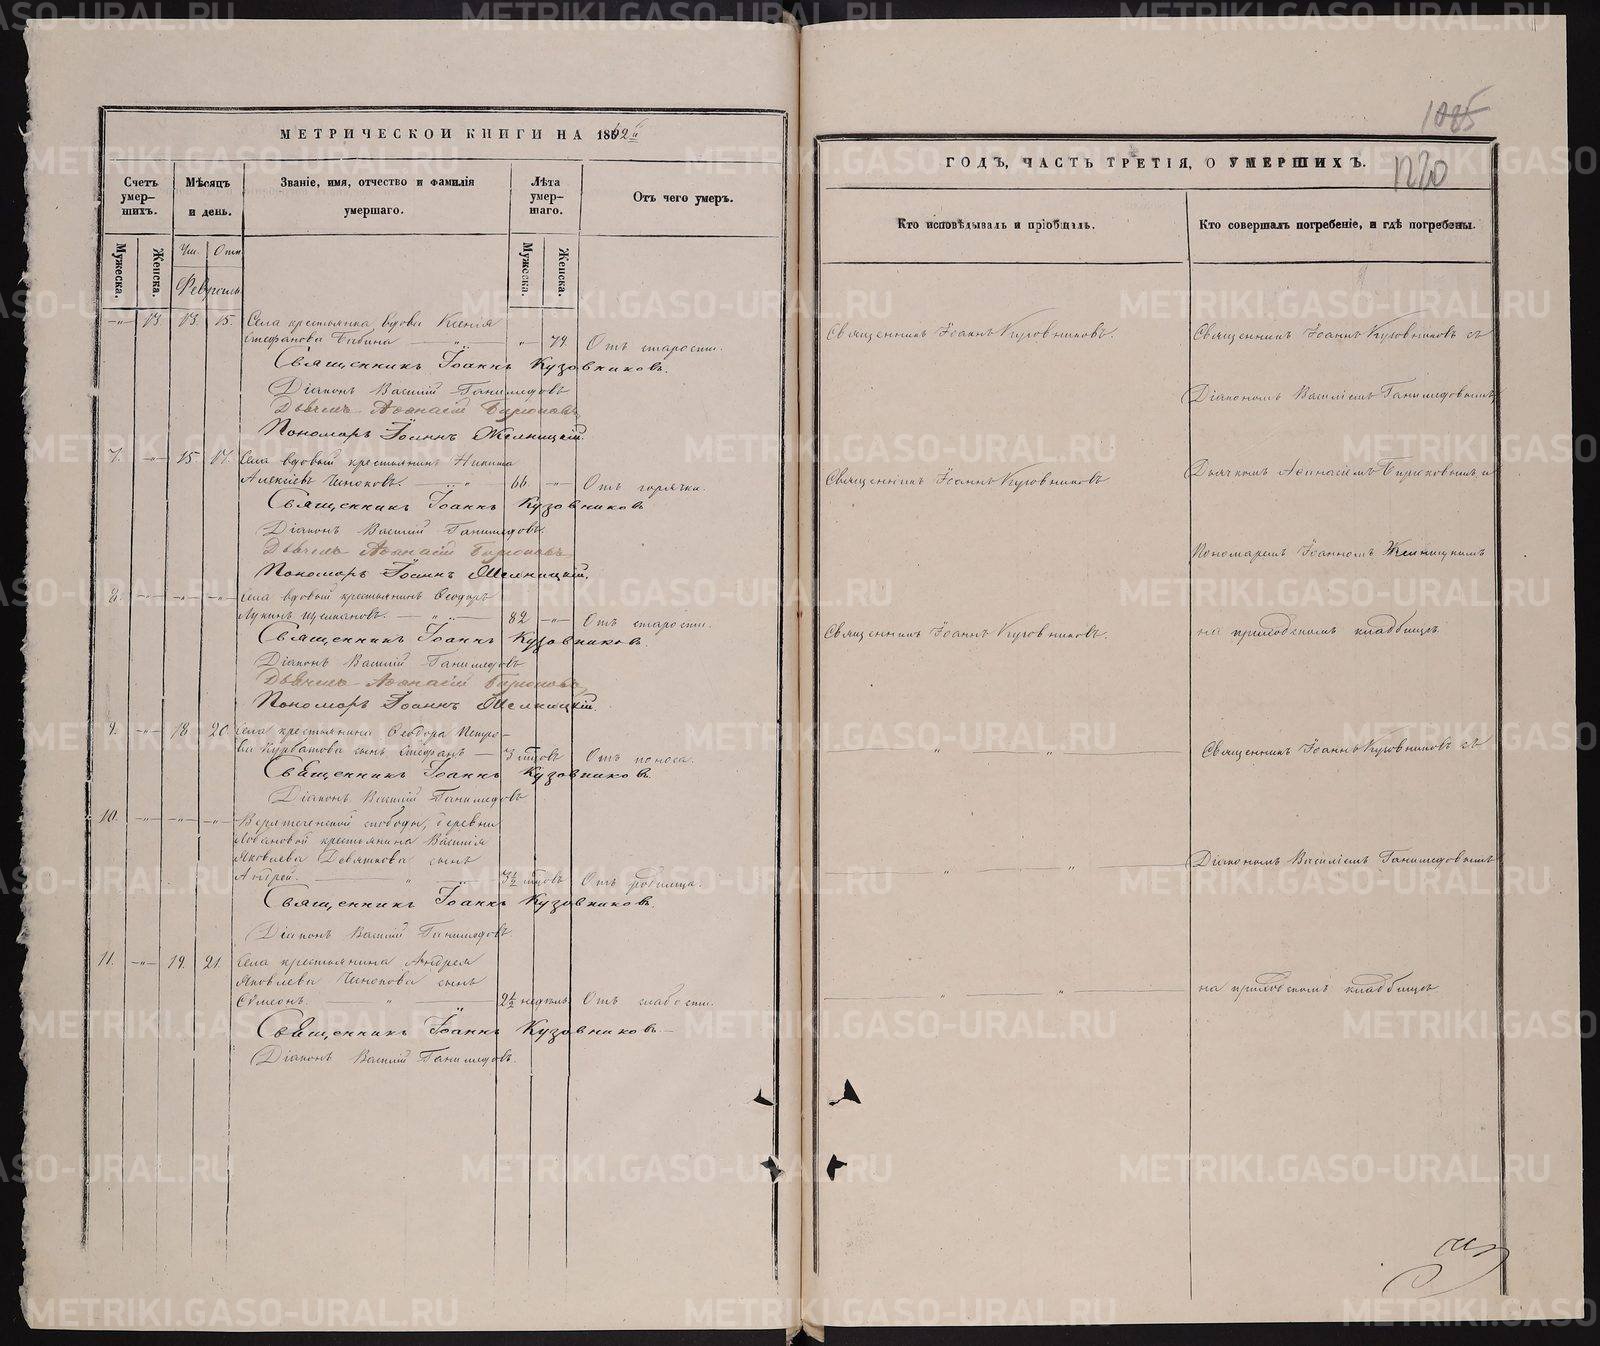 МЕТРИЧЕСКОЙ КНИГИ НА 1862й
Счетъ умер-шихъ.
Мѣсяцъ и день.
Званіе, имя, отчество и фамилія умершаго.
Лѣта умер-шаго.
Отъ чего умеръ.
Мужеска.
Женска.
Мужеска.
Женска.
Февраль
13. 13. 15. Села крестьянка вдова Ксенія
Стефанова Бабина 74 Отъ старости.
Священникъ Іоаннъ Кузовниковъ.
Діаконъ Василій Ганимедовъ
Дьячекъ Аѳанасій Бирюковъ
Пономарь Іоаннъ Желницкій.
7. 15. 17. Села вдовый крестьянинъ Никита
Алексіевъ 66. Отъ горячки.
Священникъ Іоаннъ Кузовниковъ
Діаконъ Василій Ганимедовъ.
Дьячекъ Аѳанасій Бирюковъ
Пономарь Іоаннъ Желницкій.
8. Села вдовый крестьянинъ Ѳеодоръ
82 Отъ старости.
Священникъ Іоаннъ Кузовниковъ.
Діаконъ Василій Ганимедовъ
Дьячекъ Аѳанасій Бирюковъ
Пономарь Іоаннъ Желницкій.
9. 18 20. Села крестьянина Ѳеодора Петро-
ва Курбатова сынъ Стефанъ 3 Отъ поноса.
Священникъ Іоаннъ Кузовниковъ.
Діаконъ Василій Ганимедовъ
10. слободы, деревни
Лобановой крестьянина Василія
Яковлева Девяткова сынъ
Андрей. Отъ родимца.
Священникъ Іоаннъ Кузовниковъ.
Діаконъ Василій Ганимедовъ.
11. 19. 21. Села крестьянина Андрея
Яковлева сынъ
Сѵмеонъ. 2½ недѣль Отъ слабости.
Священникъ Іоаннъ Кузовниковъ.
Діаконъ Василій Ганимедовъ.
1085
1220
ГОДЪ, ЧАСТЬ ТРЕТІЯ, О УМЕРШИХЪ.
Кто исповѣдывалъ и пріобщалъ.
Кто совершалъ погребеніе, и гдѣ погребены.
Священникъ Іоаннъ Кузовниковъ.
Священникъ Іоаннъ Кузовниковъ съ
Діакономъ Василіемъ Ганимедовымъ,
Священникъ Іоаннъ Кузовниковъ.
Дьячкомъ Аѳанасіемъ Бирюковымъ и
Пономаремъ Іоанномъ Желницкимъ
Священникъ Іоаннъ Кузовниковъ.
на приходскомъ кладбищѣ.
Священникъ Іоаннъ Кузовниковъ съ
Діакономъ Василіемъ Ганимедовымъ
на приходскомъ кладбищѣ.
METRIKI.GASO-URAL.RU